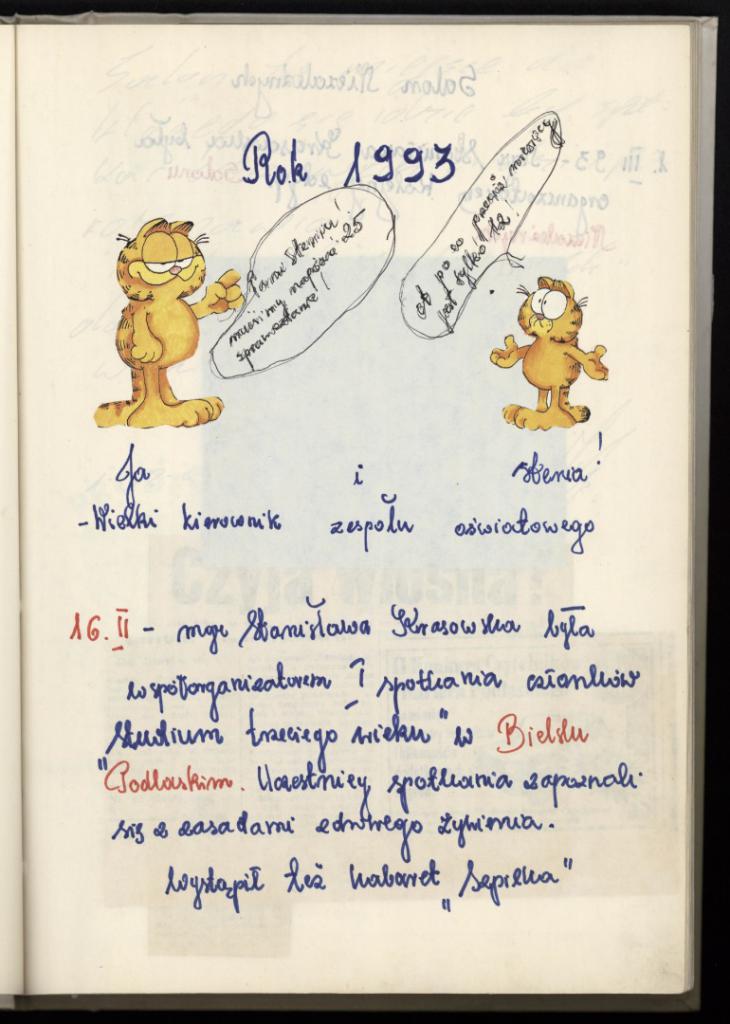 Rok 1993
Panno Steniu!
musimy napisać 25
sprawozdanie!
A po co przecież
jest tylko 12
Ja i Stenia!
- Wielki kierownik zespołu oświatowego
16. II - mgr Stanisława Krasowska była
współorganizatorem I spotkania członków
"Studium trzeciego wieku" w Bielsku
Podlaskim. Uczestnicy spotkania zapoznali
się z zasadami zdrowego żywienia.
Wystąpił też kabaret „Szpilka"